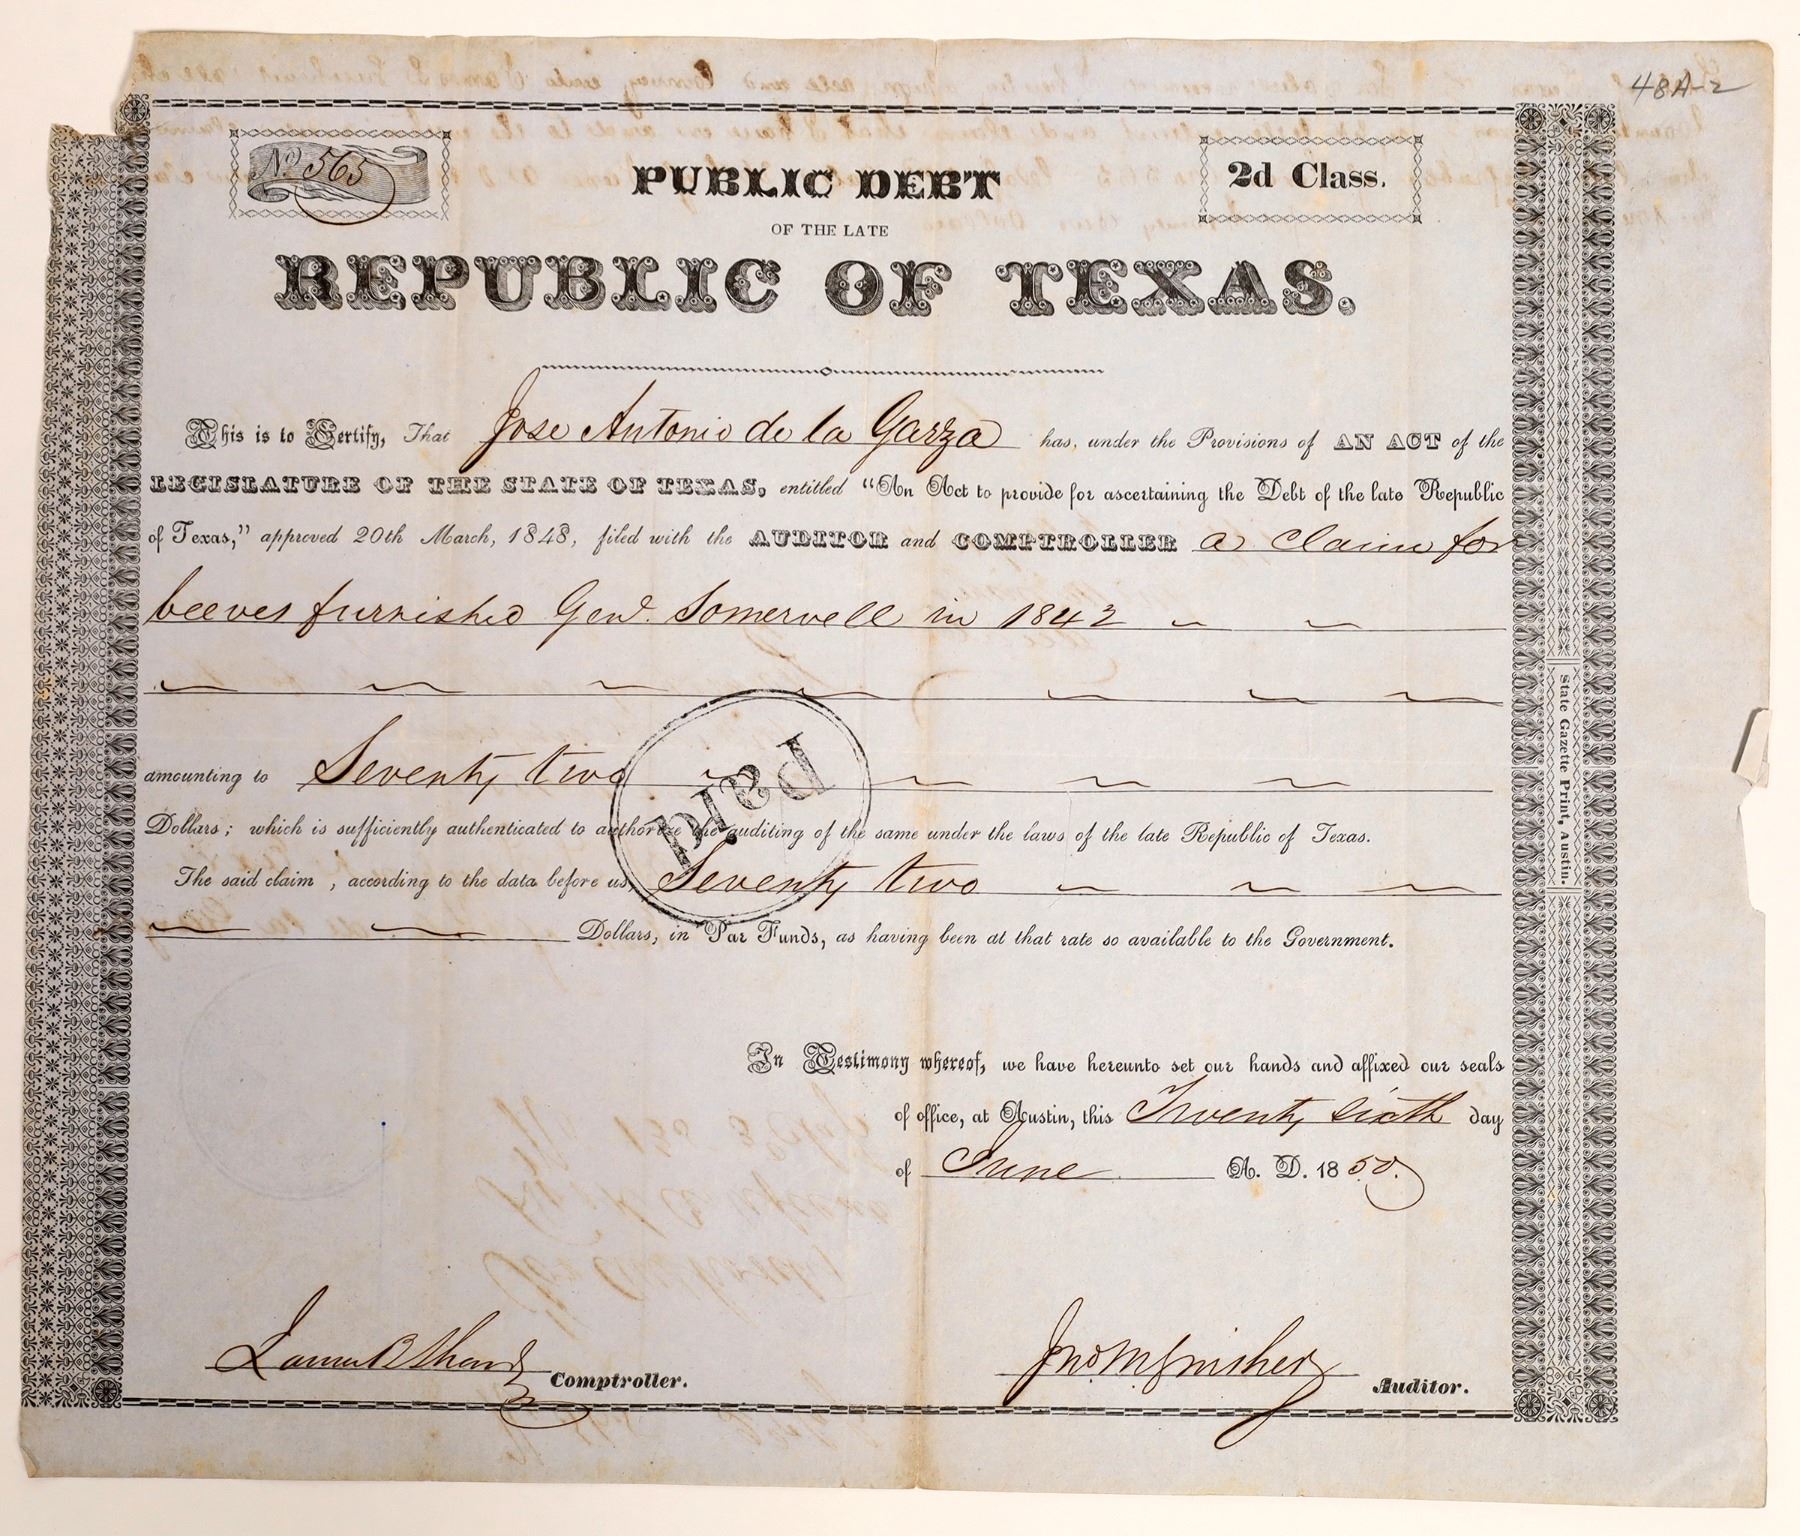 48A-2
No 565
PUBLIC DEBT
2d Class.
OF THE LATE
REPUBLIC OF TEXAS.
This is to Certify, That Jose Antonio de la Garza has, under the Provisions of AN ACT of the
LEGISLATURE OF THE STATE OF TEXAS, entitled "An Act to provide for ascertaining the Debt of the late Republic
of Texas," approved 20th March, 1848, filed with the AUDITOR and COMPTROLLER a claim for
beeves furnished Genl. Somervell in 1842
amounting to Seventy two
Paid
Dollars; which is sufficiently authenticated to authorize the auditing of the same under the laws of the late Republic of Texas.
The said claim, according to the data before us, Seventy two
Dollars, in Par Funds, as having been at that rate so available to the Government.
In Testimony whereof, we have hereunto set our hands and affixed our seals
of office, at Austin, this Twenty sixth day
of June A. D. 1850.
James B Shaw
Comptroller.
Jno M Swisher
Auditor.
State Gazette Print, Austin.